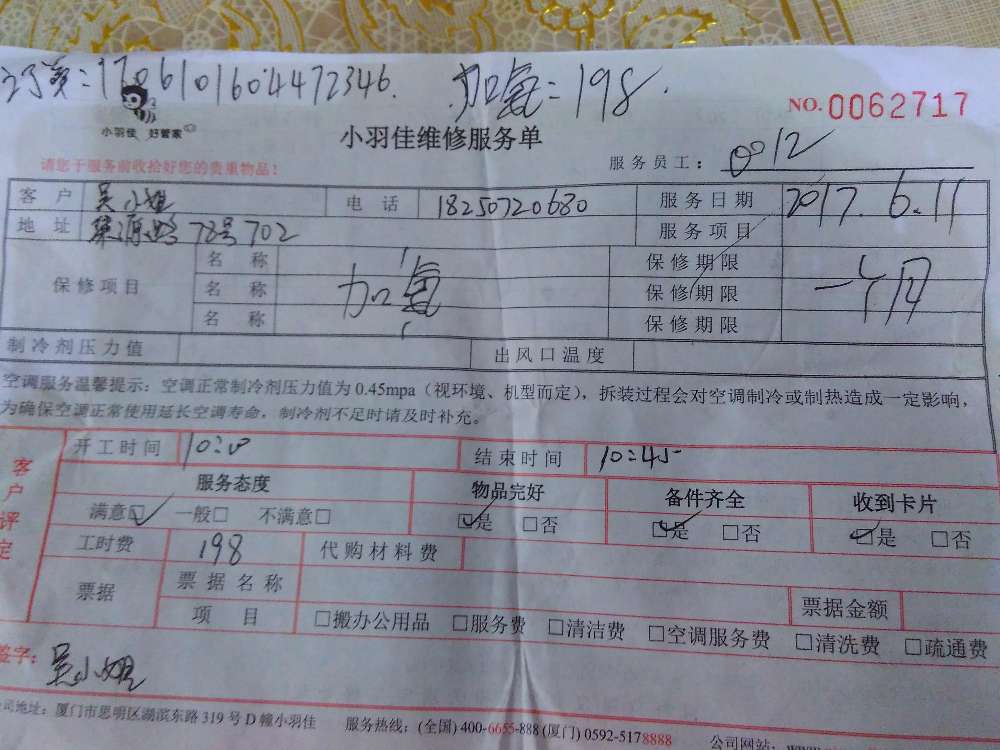 订单:17061016044 72346. 加氨=198.
小羽佳 好管家
NO.0062717
小羽佳维修服务单
请您于服务前收拾好您的贵重物品!
服务员工: 0012
客户 吴小姐 电话 18250720680 服务日期 2017.6.11
地址 78号702 服务项目
保修项目 名称 加氨 保修期限 一个月
名称 保修期限
名称 保修期限
制冷剂压力值 出风口温度
空调服务温馨提示:空调正常制冷剂压力值为0.45mpa(视环境、机型而定),拆装过程会对空调制冷或制热造成一定影响,
为确保空调正常使用延长空调寿命,制冷剂不足时请及时补充。
客户评定
开工时间 10:00 结束时间 10:45
服务态度 物品完好 备件齐全 收到卡片
满意☑ 一般□ 不满意□ ☑是 □否 ☑是 □否 ☑是 □否
工时费 198 代购材料费
票据 票据名称 票据金额
项目 □搬办公用品 □服务费 □清洁费 □空调服务费 □清洗费 □疏通费
签字: 吴小姐
公司地址:厦门市思明区湖滨东路319号D幢小羽佳 服务热线:(全国)400-6655-888(厦门)0592-5178888 公司网站: